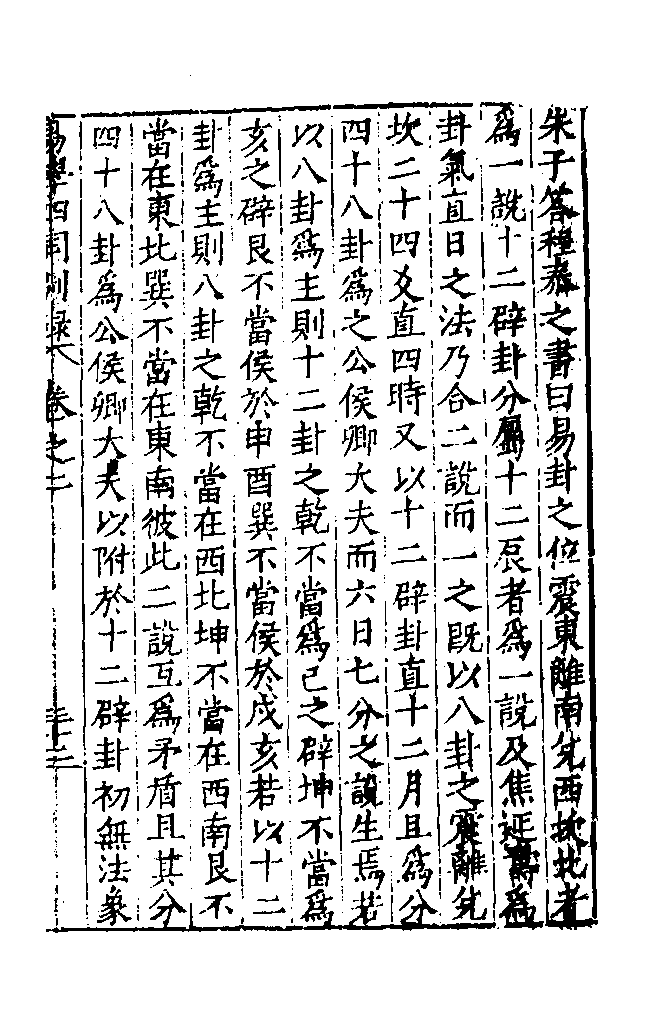 朱子答程泰之書曰易卦之位震東離南兊西坎北者
爲一說十二辟卦分屬十二辰者爲一說及焦延壽爲
卦氣直日之法乃合二說而一之旣以八卦之震離兊
坎二十四爻直四時又以十二辟卦直十二月且爲分
四十八卦爲之公侯卿大夫而六日七分之說生焉若
以八卦爲主則十二卦之乾不當爲巳之辟坤不當爲
亥之辟艮不當侯於申酉巽不當侯於戌亥若以十二
卦爲主則八卦之乾不當在西北坤不當在西南艮不
當在東北巽不當在東南彼此二說互爲矛盾且其分
四十八卦爲公侯卿大夫以附於十二辟卦初無法象
易學四同別錄 卷之二